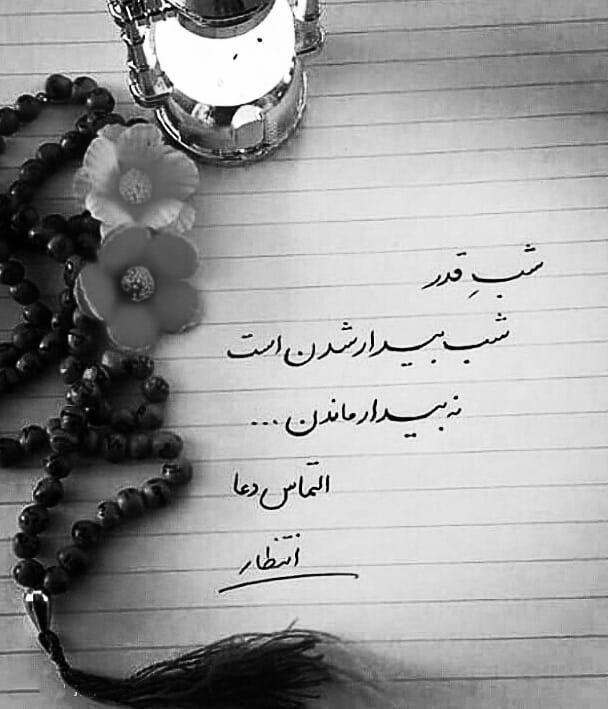 شبِ قدر
شب بیدار شدن است
نه بیدار ماندن ...
التماس دعا
انتظار